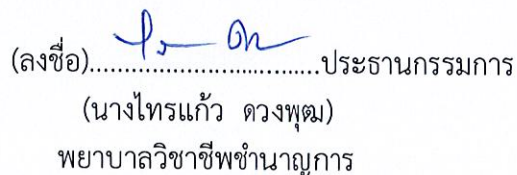 (ลงชื่อ)....................................ประธานกรรมการ
(นางไทรแก้ว ดวงพุฒ)
พยาบาลวิชาชีพชำนาญการ